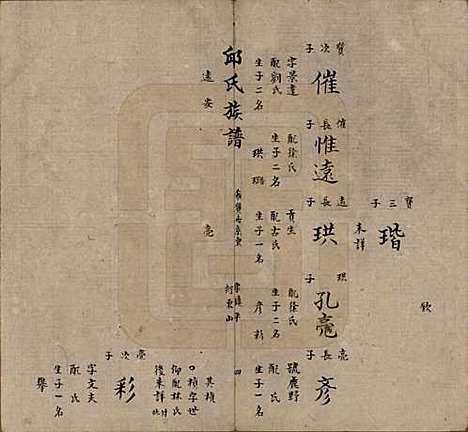 欽
寶三子
瑎
未詳
寶次子
催
字景達
配劉氏
生子二名
催長子
惟遠
配徐氏
生子二名
珙 瑎
遠長子
珙
貢生
配古氏
生子一名
珙子
孔亮
配徐氏
生子二名
彥 彩
亮長子
彥
號鹿野
配氏
生子一名
邱氏族譜
四
遠 安
亮
亮次子
彩
字文夫
配氏
生子一名
舉
其頴
頴字世
仰配林氏
後未詳